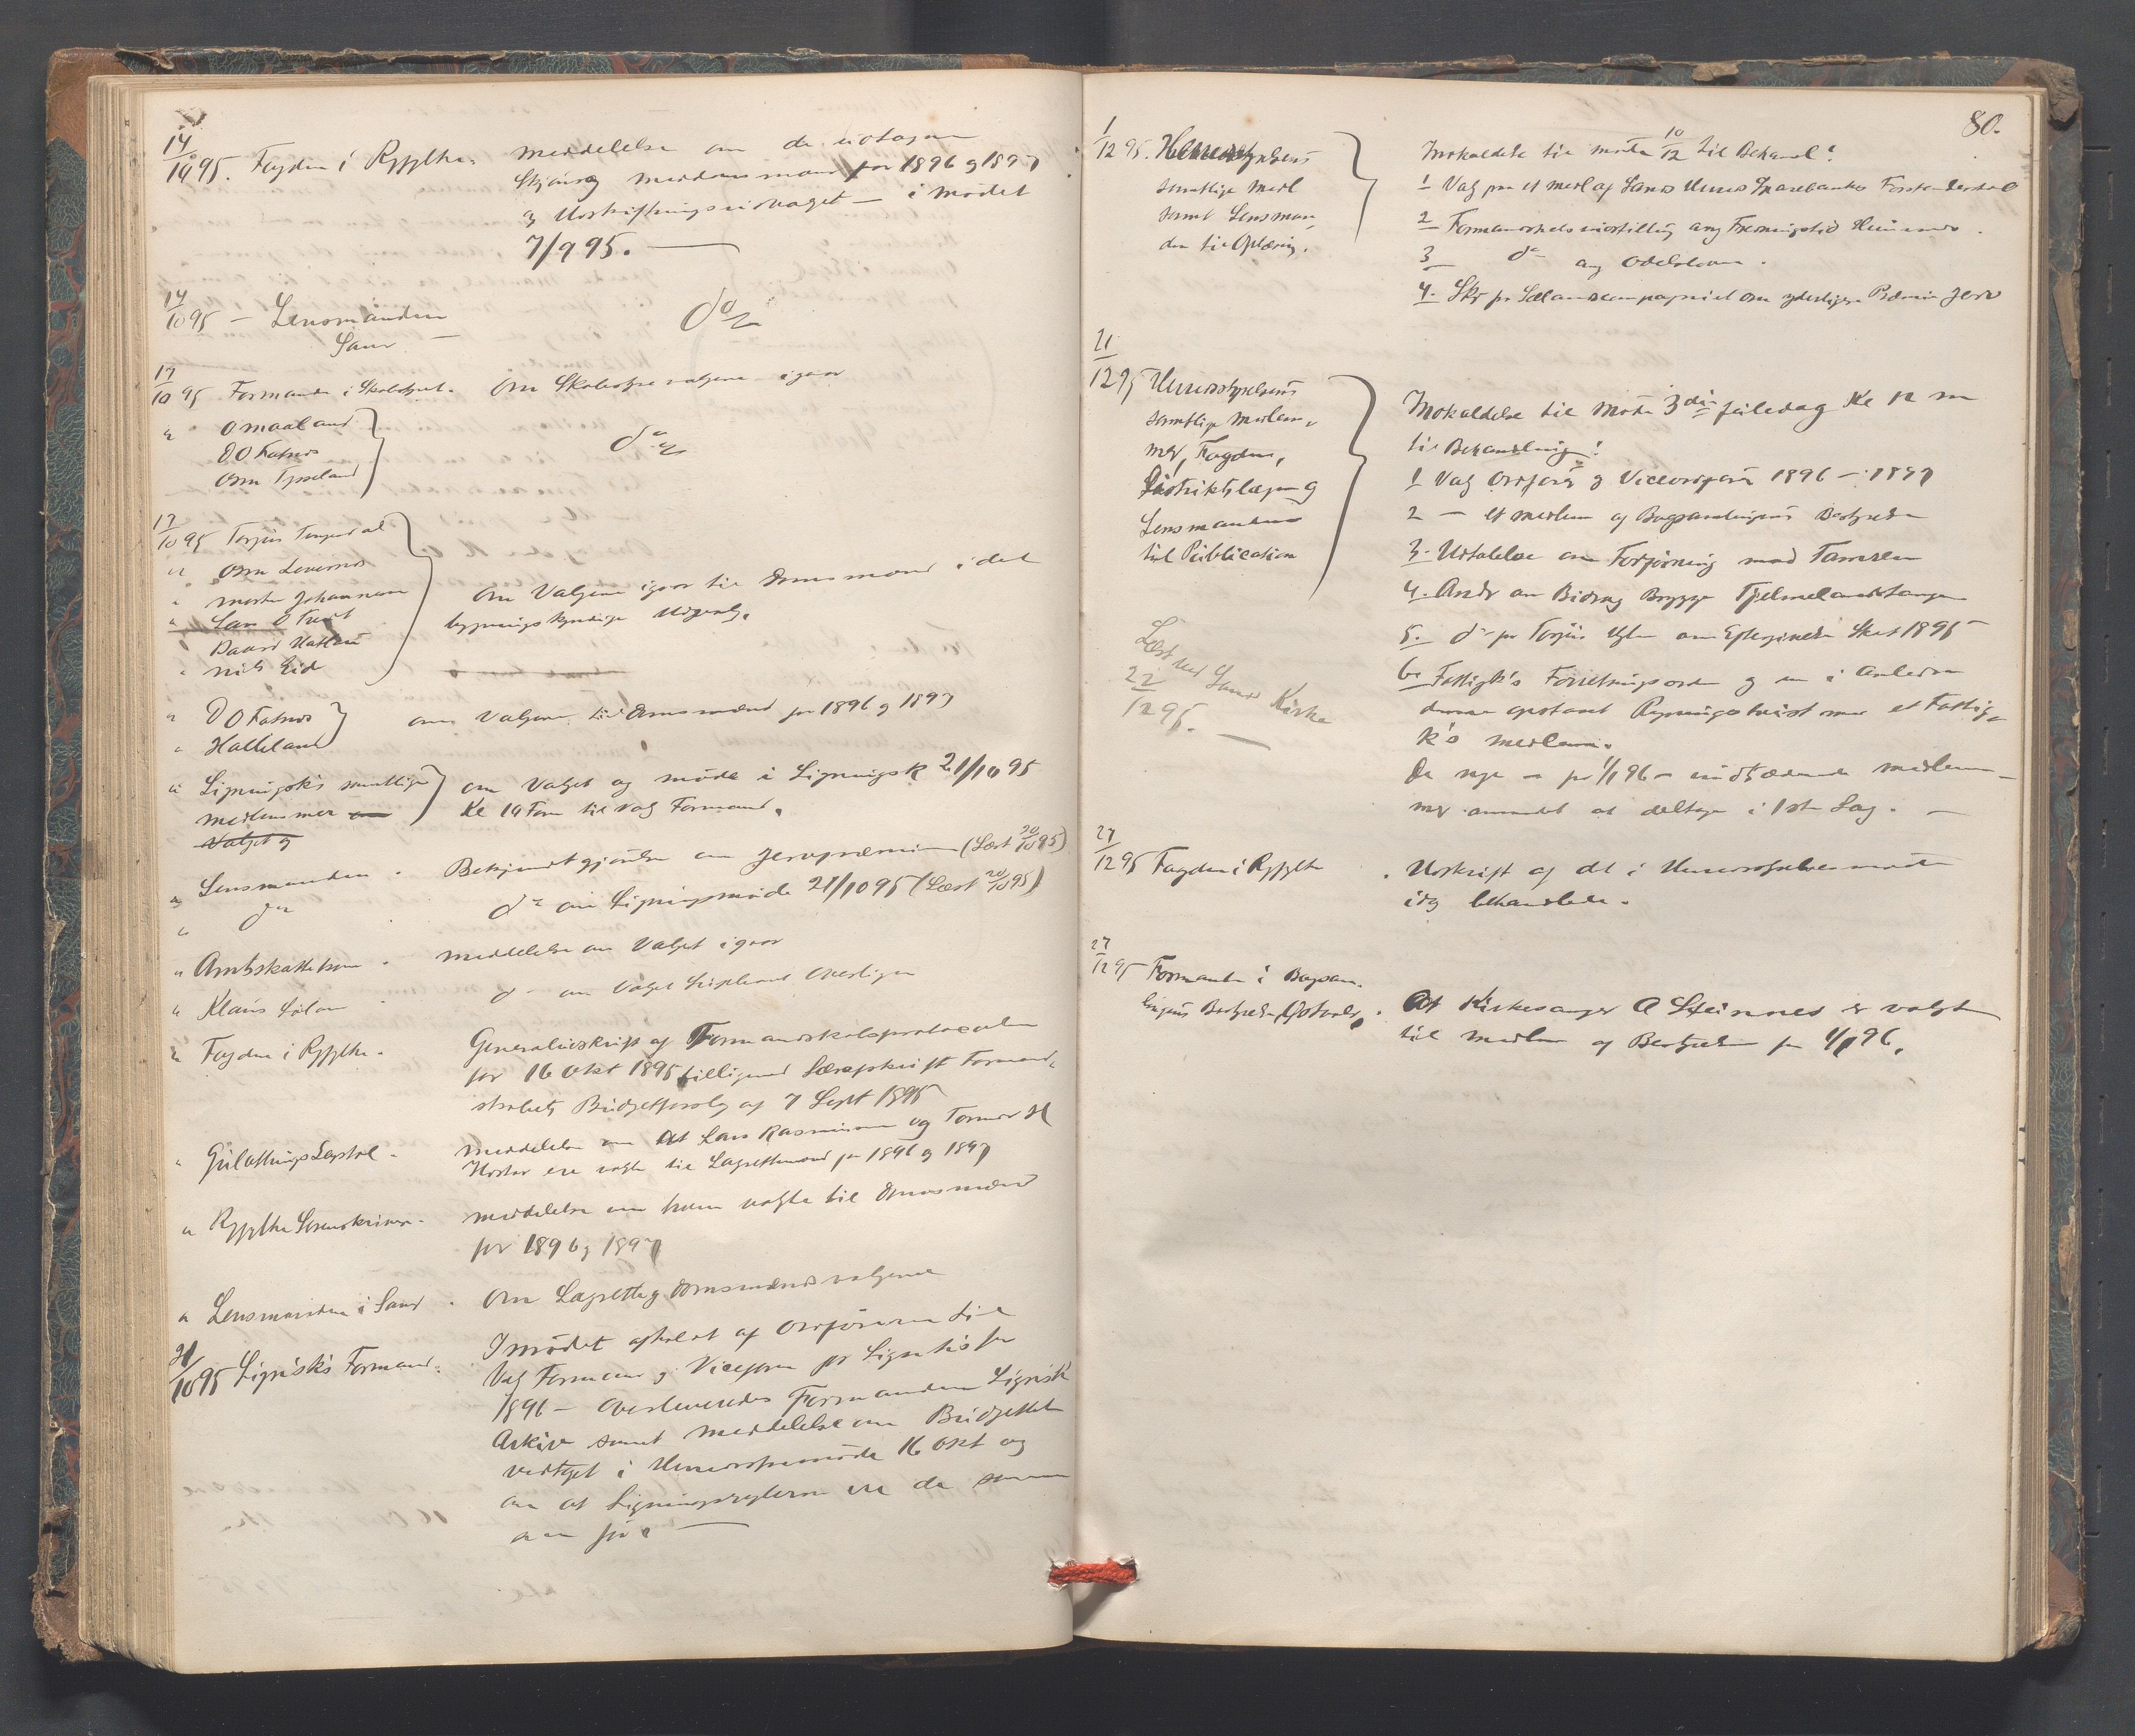 14/10 95. Fogden i Ryfylke. meddelelse om de udtagne
Skjøns og meddomsmænd for 1896 og 1897
Udskiftningsudvalget — i mødet
7/9 95. —
14/10 95 — Lensmanden
Sand — do
17/10 95 Formanden i Skolestyret. Om Skolestyrevalgene igaar
" O maaland
O O Fatnes
Osm Tysseland
do
17/10 95 Torjus
" Osm
" Johannesen
" Lars O Tveit
Baard
" Nils Eid
Om Valgene igaar til Domsmænd i det
bygningskyndige Udvalg.
" O O Fatnes
" Halleland
om Valgene til Domsmænd for 1896 og 1897
" Ligningsk's samtlige
medlemmer om
Valget og
om Valget og møde i Ligningsk 21/10 95
Kl 10 Form til Valg Formand.
" Lensmanden - Bekjendtgjørelse om Jervpræmien (Læst 20/10 95)
" do do om Ligningsmøde 21/10 95 (Læst 20/10 95)
" Amtsskattekom - meddelelse om Valget igaar
" Klaus do om Valget
" Fogden i Ryfylke - Generaludskrift af Formandskabsprotocollen
for 16 Okt 1895 tilligemed Særafskrift Formand-
skabets Budgetforslag af 7 Sept 1895
" Gulathings Lagstol - meddelelse om At Lars Rasmussen og Tormod H
ere valgte til Lagrettemænd for 1896 og 1897
" Ryfylke Sorenskriver - meddelelse om hvem valgte til Domsmænd
for 1896 og 1897
" Lensmanden i Sand - Om Lagrette og Domsmændsvalgene
21/10 95 Lignsk's Formand - I mødet afholdt af Ordføreren til
Valg Formand og Viceform for Lignsk's for
1896 — overleveredes Formanden Lignsk
Arkiv samt meddelelse om Budgettet
vedtget i Herredsstmøde 16 Okt og
om at Ligningsreglerne ere de samme
som før —
80.
1/12 95. Herredsstyrelsens
samtlige Medl
samt Lensman-
den til Oplæsning.
Indkaldelse til møde 10/12 til Behandl:
1 Valg paa et medl af Sands Herreds Sparebanks Forstanderskab
2 Formandskabs indstilling ang Fredningstid
3 do ang Odelsloven.
4. Skr fr om yderligere Præmie Jerv
21/12 95 Herredsstyrelsens
samtlige medlem-
mer, Fogden,
Distriktslægen og
Lensmanden
til Publication
Indkaldelse til Møde 3die juledag Kl 12 m
til Behandling:
1 Valg Ordfører og Viceordfører 1896 – 1897
2 — et medlem af Bogsamlingens Bestyrelse
3. Udtalelse om Forføining mod Tamren
4. Andr om Bidrag Brygge Tjelmelandstangen
5. do fr Torjus om Eftergivelse Skat 1895
6. Fattigk's Forretningsorden og en i Anledn
denne opstaaet Regningstvist med et Fattig-
k's medlem.
De nye — fra 1/1 96 — indtrædende medlem-
mer anmodet at deltage i 1ste Sag. —
Læst ved Sands Kirke
22/12 95. —
27/12 95 Fogden i Ryfylke . Udskrift af det i Herredsstyrelsesmøde
idag behandlede.
27/12 95 Formanden i Bogsam-
lingens Bestyrelse . At Kirkesanger A Steinnes er valgt
til medlem af Bestyrelsen fra 1/1 96.